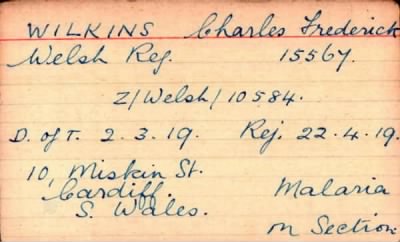 WILKINS Charles Frederick
Welsh Reg. 15567.
Z/Welsh/10584.
D. of T. 2.3.19. Rej. 22.4.19.
10, Miskin St.
Cardiff.
S. Wales.
Malaria
M Section